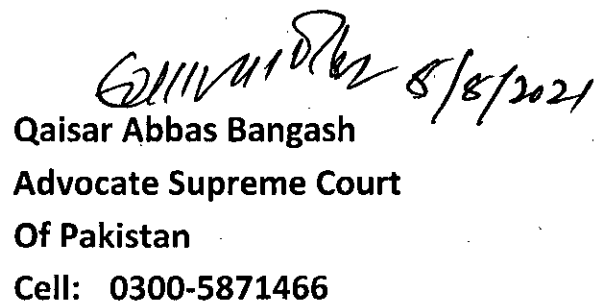 8/8/2021
Qaisar Abbas Bangash
Advocate Supreme Court
Of Pakistan
Cell: 0300-5871466